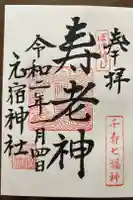 奉拝
寿老神
令和二年一月四日
元宿神社
千寿七福神